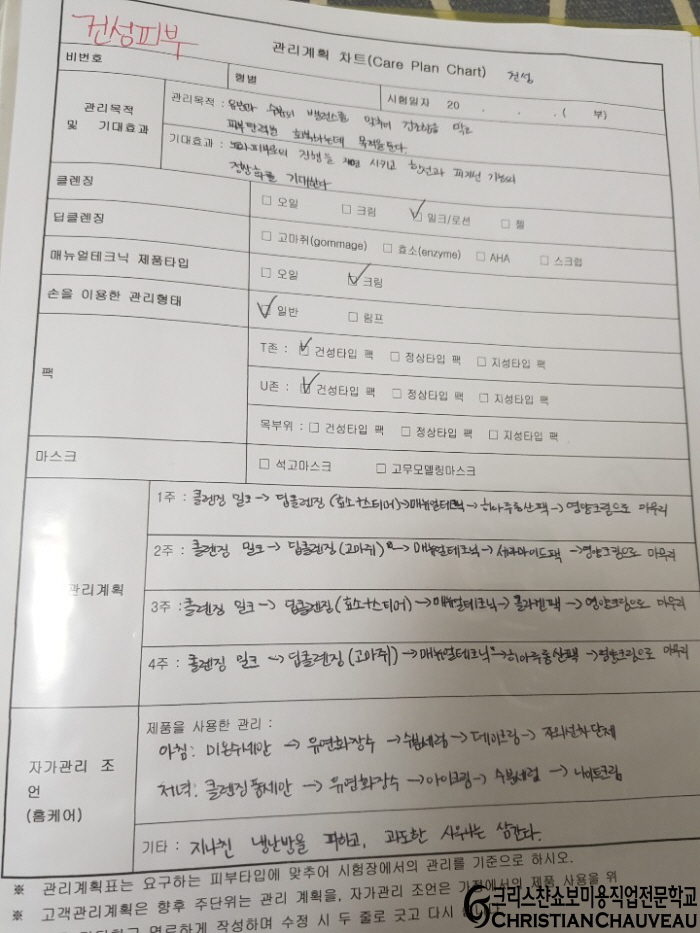 건성피부
관리계획 차트(Care Plan Chart) 건성
비번호
형별
시험일자 20 . . . ( 부)
관리목적 및 기대효과
관리목적 : 유분과 수분의 밸런스를 맞추어 건조함을 막고
피부탄력을 회복하는데 목적을둔다.
기대효과 : 노화피부로의 진행을 지연 시키고 한선과 피지선 기능의
정상화를 기대한다
클렌징
□ 오일 □ 크림 ☑ 밀크/로션 □ 젤
딥클렌징
□ 고마쥐(gommage) □ 효소(enzyme) □ AHA □ 스크럽
매뉴얼테크닉 제품타입
□ 오일 ☑ 크림
손을 이용한 관리형태
☑ 일반 □ 림프
팩
T존 : ☑ 건성타입 팩 □ 정상타입 팩 □ 지성타입 팩
U존 : ☑ 건성타입 팩 □ 정상타입 팩 □ 지성타입 팩
목부위 : □ 건성타입 팩 □ 정상타입 팩 □ 지성타입 팩
마스크
□ 석고마스크 □ 고무모델링마스크
관리계획
1주 : 클렌징 밀크 → 딥클렌징 (효소+스티머) → 매뉴얼테크닉 → 히아루론산팩 → 영양크림으로 마무리
2주 : 클렌징 밀크 → 딥클렌징(고마쥐) → 매뉴얼테크닉 → 세라마이드팩 → 영양크림으로 마무리
3주 : 클렌징 밀크 → 딥클렌징(효소+스티머) → 매뉴얼테크닉 → 콜라겐팩 → 영양크림으로 마무리
4주 : 클렌징 밀크 → 딥클렌징(고마쥐) → 매뉴얼테크닉 → 히아루론산팩 → 영양크림으로 마무리
자가관리 조
언
(홈케어)
제품을 사용한 관리 :
아침: 미온수세안 → 유연화장수 → 수분세럼 → 데이크림 → 자외선차단제
저녁: 클렌징폼세안 → 유연화장수 → 아이크림 → 수분세럼 → 나이트크림
기타 : 지나친 냉난방을 피하고, 과도한 사우나는 삼간다.
※ 관리계획표는 요구하는 피부타입에 맞추어 시험장에서의 관리를 기준으로 하시오.
※ 고객관리계획은 향후 주단위는 관리 계획을, 자가관리 조언은 가정에서의 제품 사용을 위
명료하게 작성하며 수정 시 두 줄로 긋고 다시
크리스챤쇼보미용직업전문학교
CHRISTIAN CHAUVEAU